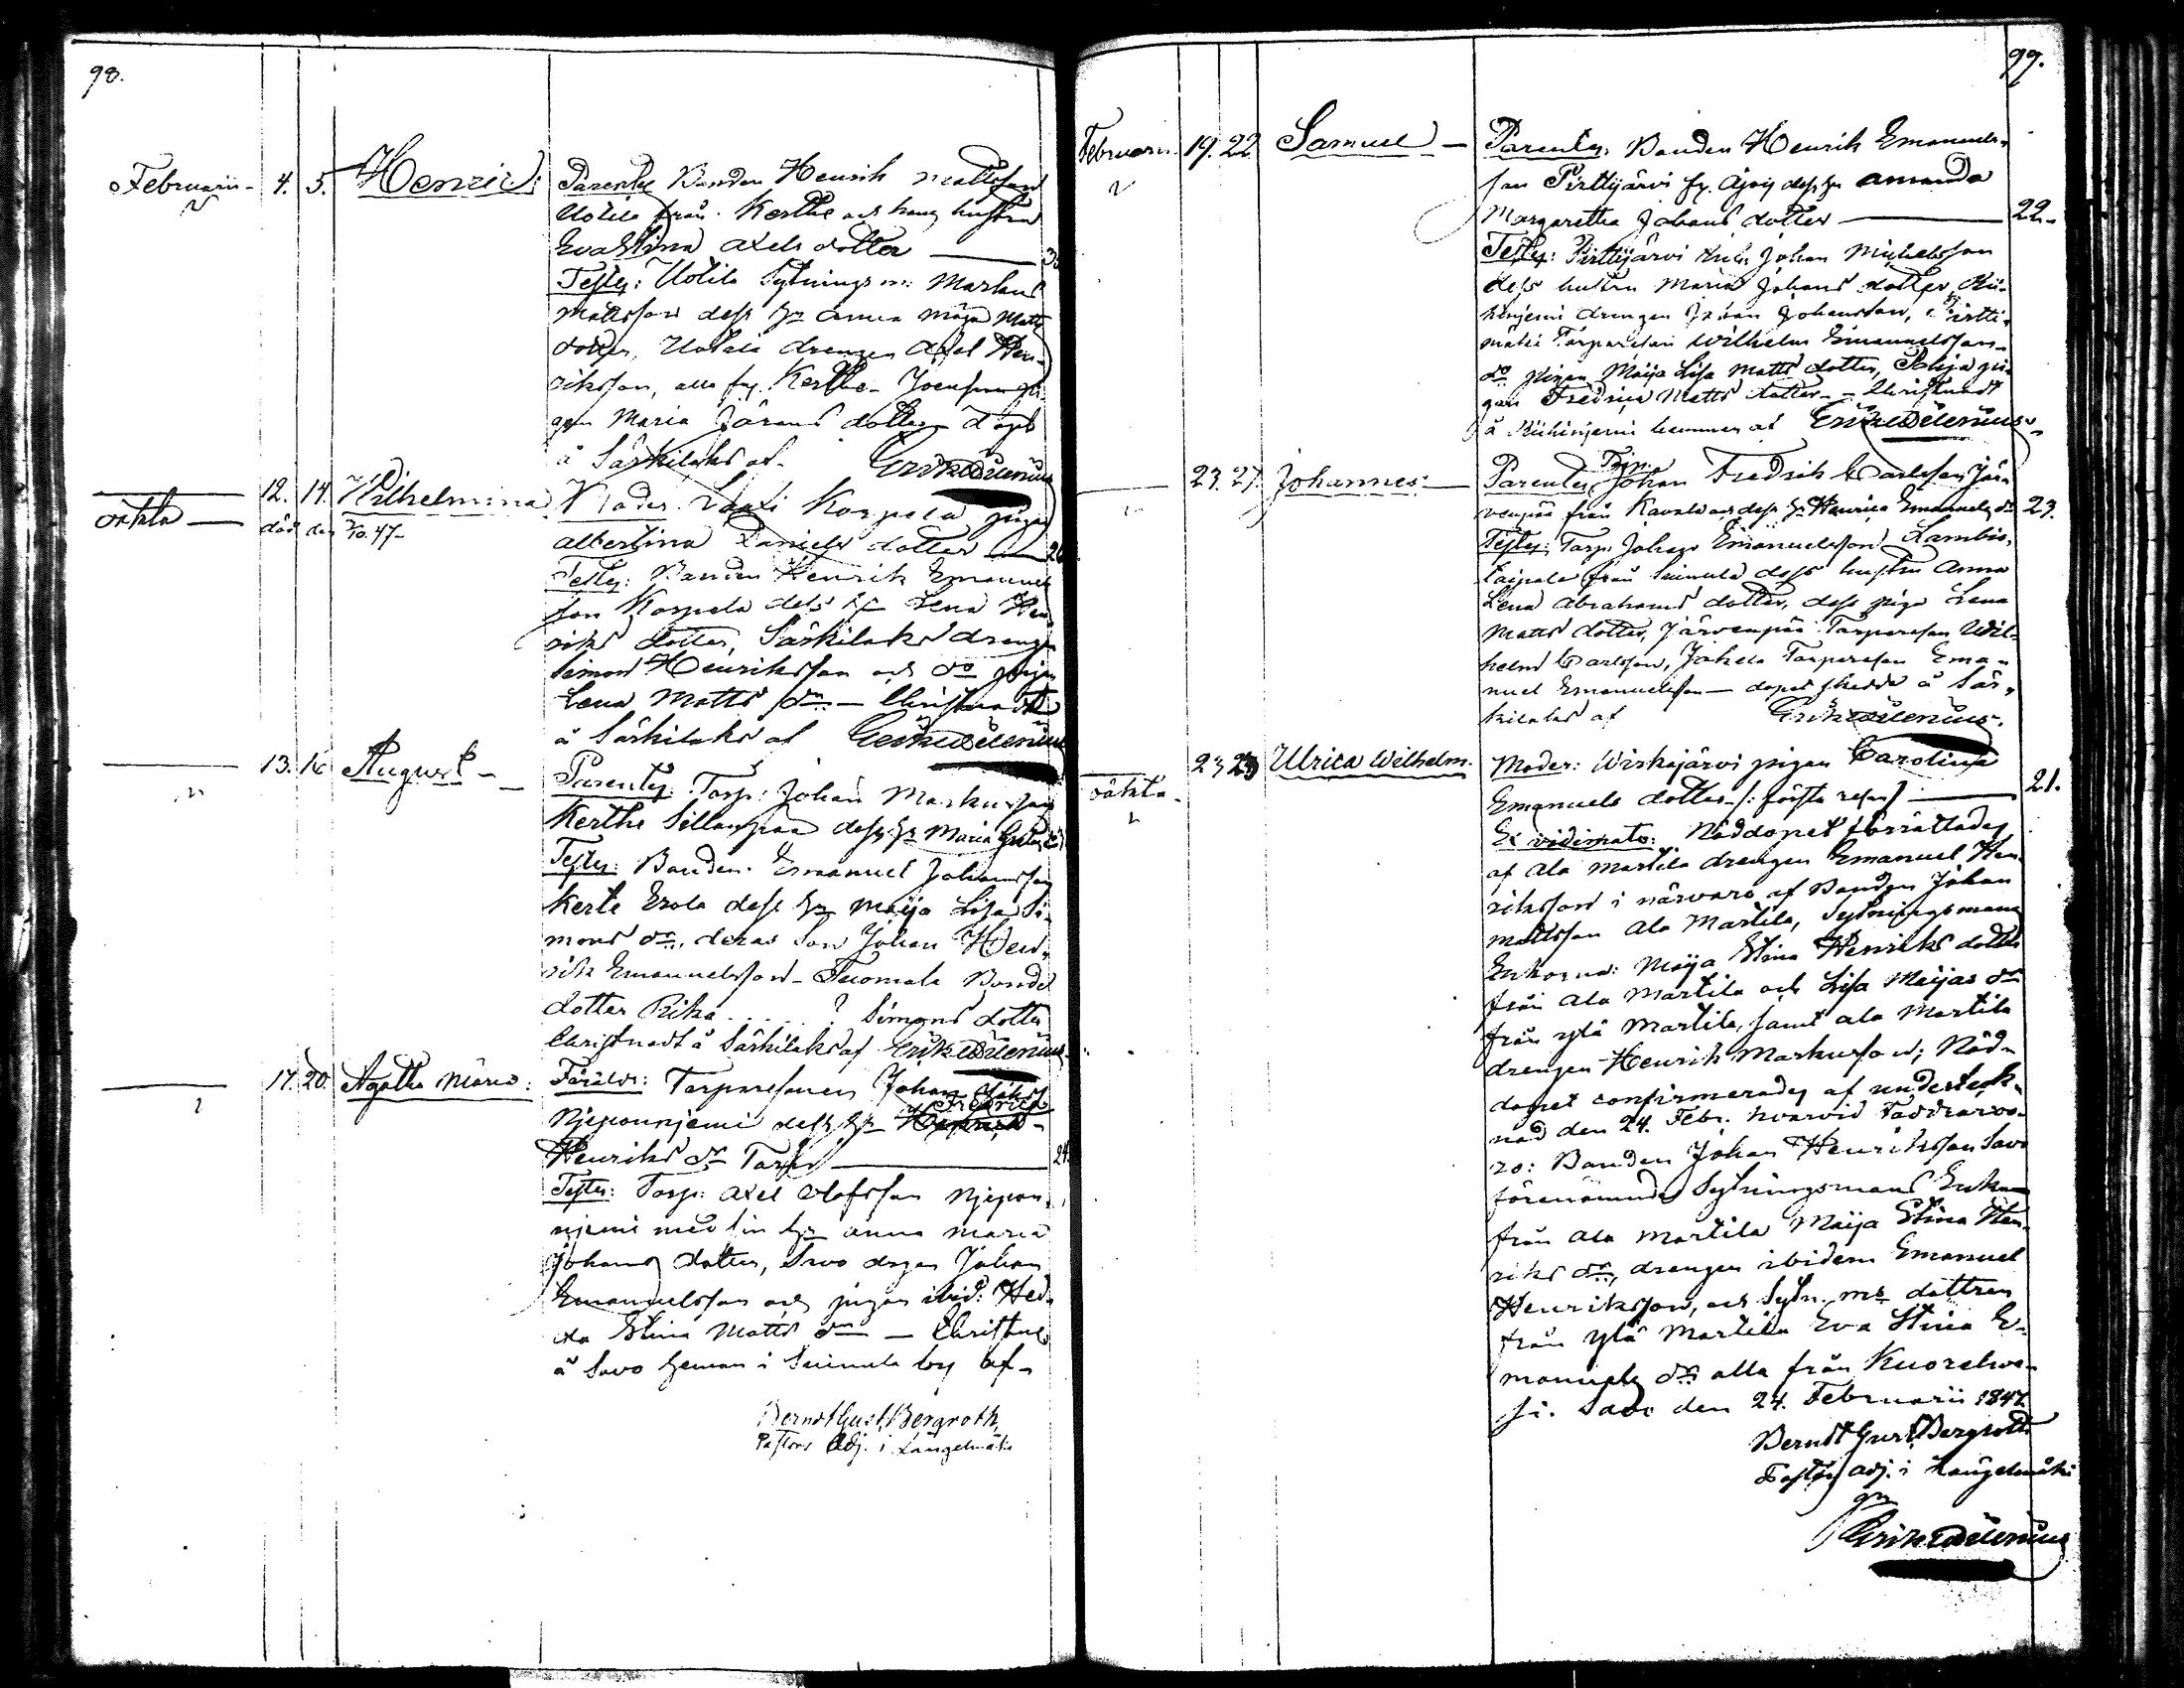 98.
Februarii - 4. 5. Henric:
Parentes Bonden Henrik Mattsson
Uotila från Kerthe och hans hustru
Eva Stina Axels dotter — 3
Testes: Uotila Sytnings m: Markus
Mattsson dess hr Anna Maja Matts
dotter, Uotila drengen Axel Hen-
riksson, alla frn Kerthe - pi-
gan Maria Jörans dotter - döpt
å Särkilaks af Erik Edvard Wilenius
oäkta — 12. 14. Wilhelmina
död den 7/10. 47-
Moder: Korpela pigan
Albertina Daniels dotter — 26
Testes: Bonden Henrik Emanuels
son Korpela dess hr Lena Hen-
riks dotter, Särkilaks drengen
Simon Henriksson och do pigan
Lena Matts dr — Christnadt
å Särkilaks af Erik Wilenius
13. 16 August -
Parentes: Torp: Johan Markusson
Kerthe Sillanpää dess hr Maria
Testes: Bonden Emanuel Johansson
Kerte Erola dess hr Maija Lisa Si-
mons dr, deras son Johan Hen-
rik Emanuelsson - Tuomala Bonde
dotter Rika . . . . . ? Simons dotter
Christnadt å Särkilaks af Erik Wilenius
17. 20. Agatha Maria:
Föräldr: Torparesonen Johan
Njeponnjemi dess hr Fredrica
Henriks dr — 24.
Testes: Torp: Axel Olofsson Njepon-
njemi med sin hr Anna Maria
Johans dotter, Savo drgen Johan
Emanuelsson och pigan ibid: Hed-
da Stina Matts dr — Christnad
å Savo heman i Suinula by af -
Berndt Gust. Bergroth,
Pastors Adj. i Längelmäki
99.
Februarii 19. 22. Samuel —
Parentes: Bonden Henrik Emanuels-
son Pirttijärvi fr. dess hr Amanda
Margaretha Johans dotter — 22.
Testes: Pirttijärvi Johan Michelsson
dess hustru Maria Johans dotter, Kii-
kinjemi drengen Johan Johansson, Pirtti-
mäki Torparesen Wilhelm Emanuelsson
do pigan Maija Lisa Matts dotter, pi-
gan Fredrica Matts dotter - Christnadt
å Kiikinjemi hemman af Erik Wilenius
23. 27. Johannes —
Parentes: Johan Fredrik Carlsson Jär-
venpää från Kavala och dess hr Henrica Emanuels dr 23.
Testes: Torp: Johan Emanuelsson Lambis-
taipale från Suinula dess hustru Anna
Lena Abrahams dotter, dess piga Lena
Matts dotter, Järvenpää Torparesen Wil-
helm Carlsson, Torparesen Ema-
nuel Emanuelsson — dopet skedde å Sär-
kilaks af Erik Wilenius.
oäkta 23 23 Ulrica Wilhelm.
Moder: Wirkajärvi pigan Carolina
Emanuels dotter /: första resan :/ — 21.
Ex vidimato: Nöddopet förrättades
af Ala Martila drengen Emanuel Hen-
riksson i närvaro af Bonden Johan
Mattsson Ala Martila, Sytningsmans
Enkorna: Maija Stina Henriks dotter
från Ala Martila och Lisa Maijas dr
från Ylä Martila, samt Ala Martila
drengen Henrik Markusson; Nöd-
dopet confirmerades af underteck-
nad den 24. Febr. hvarvid Faddrar vo-
ro: Bonden Johan Henriksson Savo
förenämnde Sytningsmans Enka
från Ala Martila Maija Stina Hen-
riks dr, drengen ibidem Emanuel
Henriksson, och Sytn. ms dottren
från Ylä Martila Eva Stina E-
manuels dr alla från Kuorehve-
si. Savo den 24. Februarii 1847
Berndt Gust. Bergroth
Pastors adj. i Längelmäki
gm
Erik Wilenius